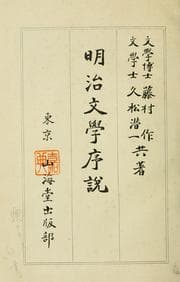 文學博士 藤村 作
文學士 久松潜一 共著
明治文學序説
東京
山海堂出版部